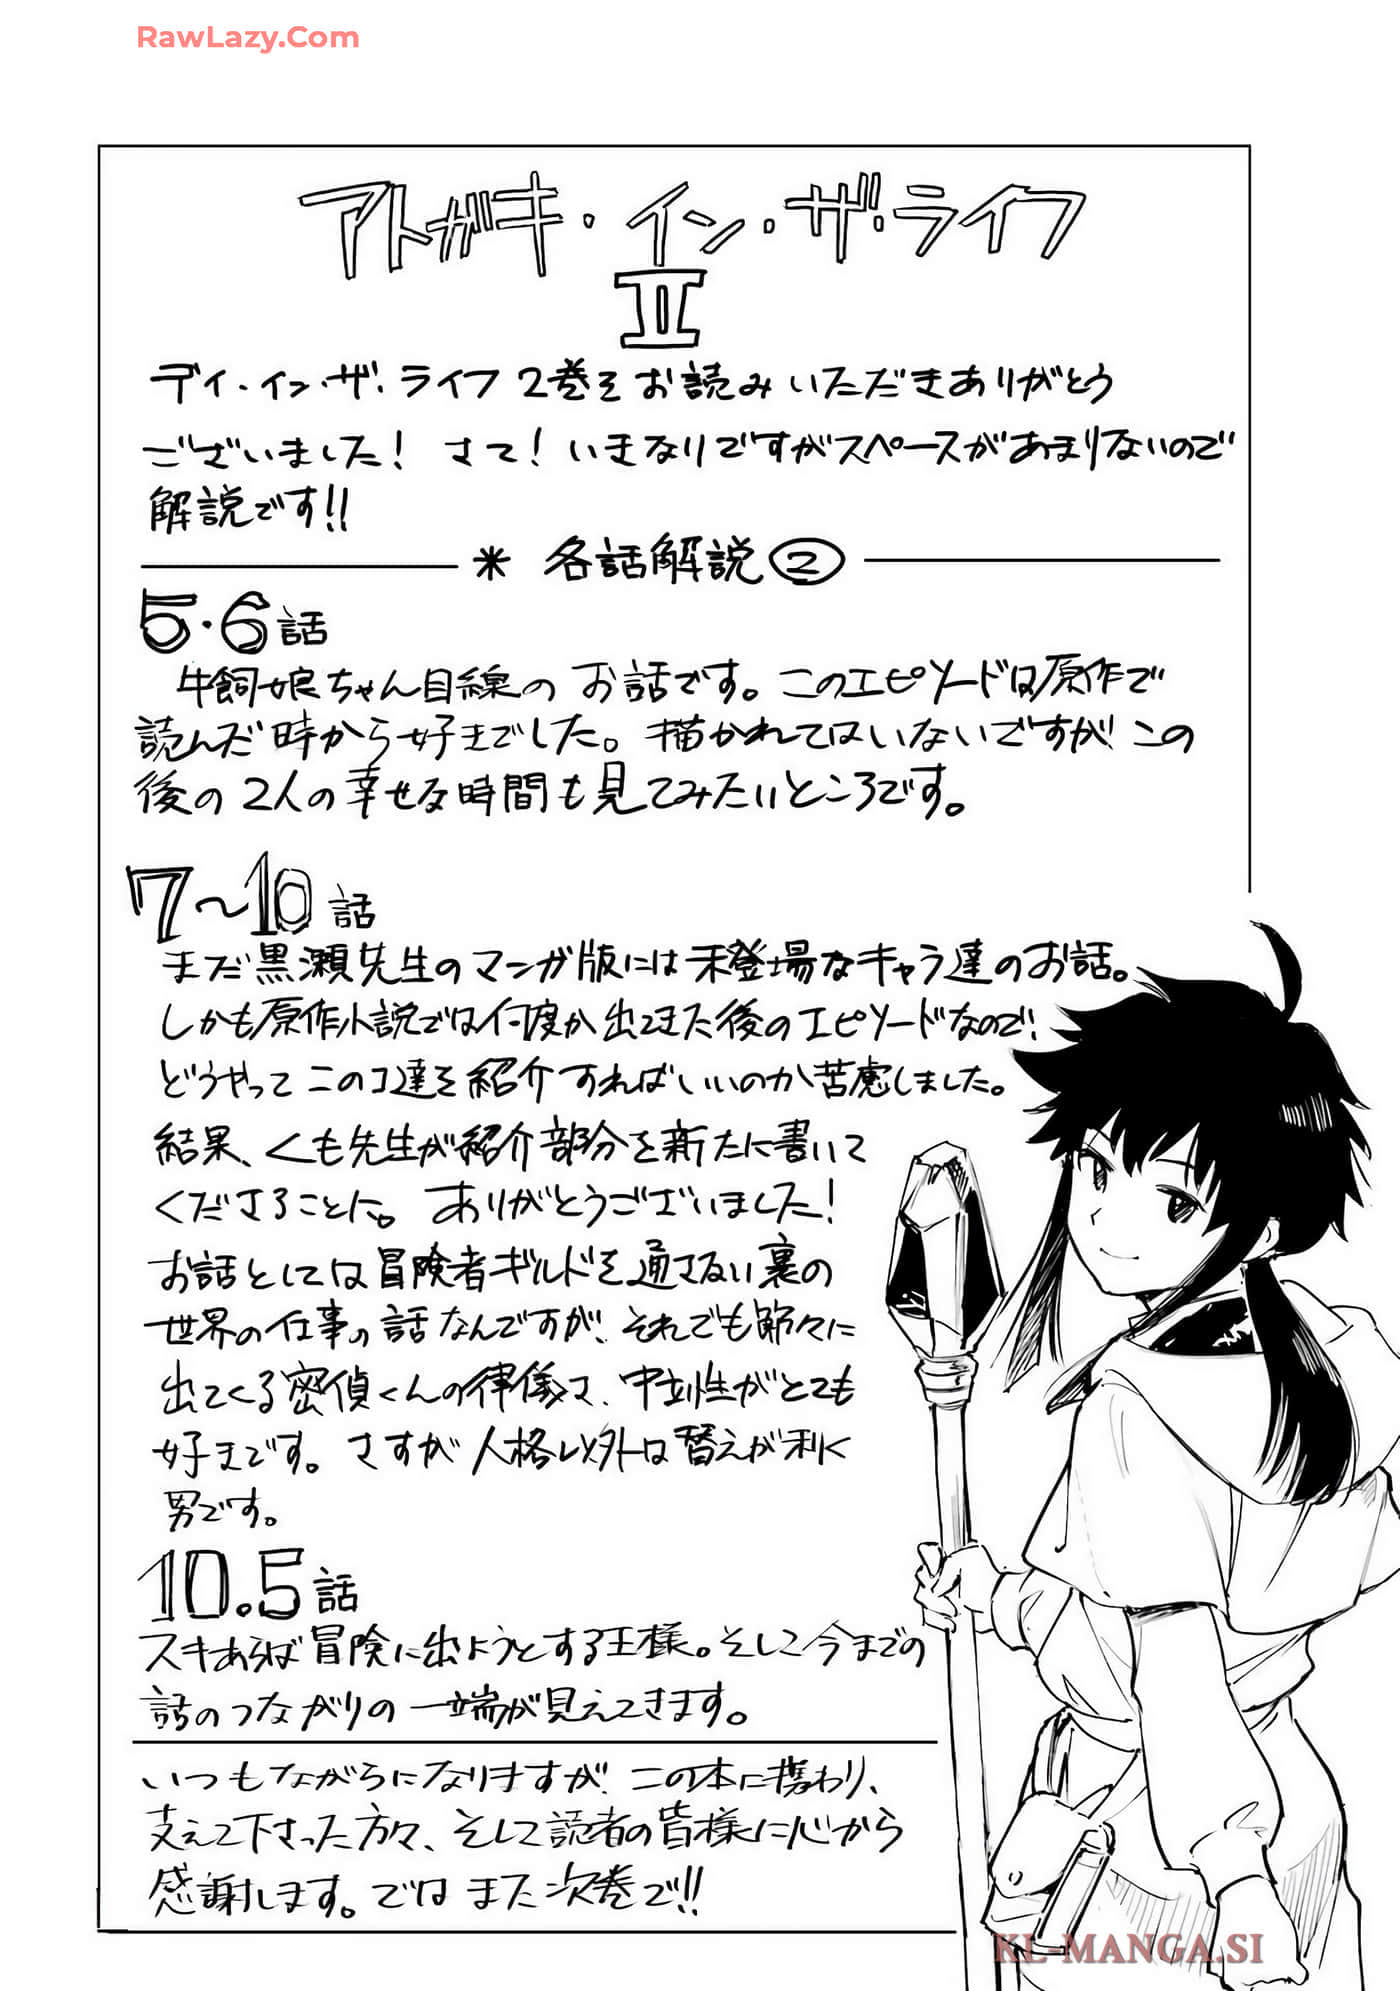 RawLazy.Com
アトガキ・イン・ザ・ライフ
II
デイ・イン・ザ・ライフ2巻をお読みいただきありがとう
ございました! さて!いきなりですがスペースがあまりないので
解説です!!
* 各話解説②
5・6話
牛飼娘ちゃん目線のお話です。このエピソードは原作で
読んだ時から好きでした。描かれてはいないですが、この
後の2人の幸せな時間も見てみたいところです。
7~10話
まだ黒瀬先生のマンガ版には未登場なキャラ達のお話。
しかも原作小説では何度か出てきた後のエピソードなので、
どうやってこのコ達を紹介すればいいのか苦慮しました。
結果、くも先生が紹介部分を新たに書いて
くださることに。ありがとうございました!
お話としては冒険者ギルドを通さない裏の
世界の仕事の話なんですが、それでも節々に
出てくる密偵くんの律儀さ、中立性がとても
好きです。さすが人格以外は替えが利く
男です。
10.5話
スキあらば冒険に出ようとする王様。そして今までの
話のつながりの一端が見えてきます。
いつもながらになりますが、この本に携わり、
支えて下さった方々、そして読者の皆様に心から
感謝します。ではまた次巻で!!
KL-MANGA.SI